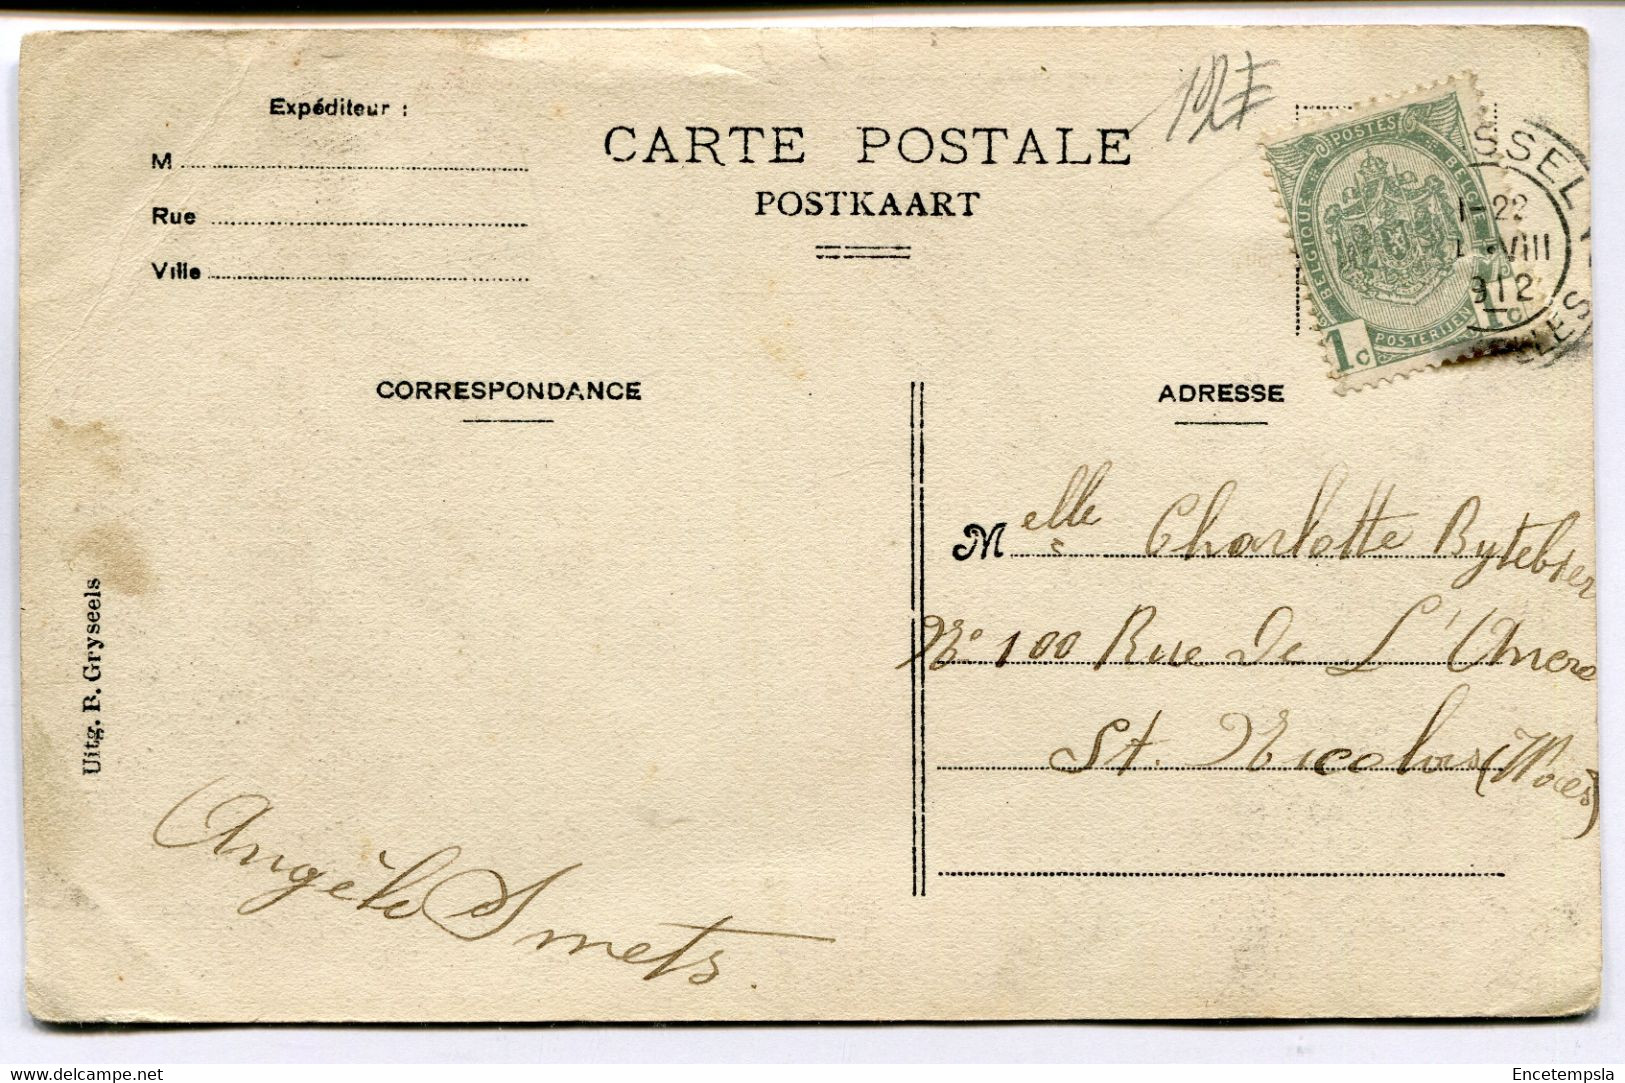 Expéditeur :
M
Rue
Ville
CARTE POSTALE
POSTKAART
POSTES
BELGIQUE
POSTERIJEN
1 c
1 c
22
VIII
912
CORRESPONDANCE
ADRESSE
Melle Charlotte Bytebier
No 100 Rue De L'Ancre
St. Nicolas (Waes)
Uitg. B. Gryseels
Angèle Smets.
www.delcampe.net
Encetempsla